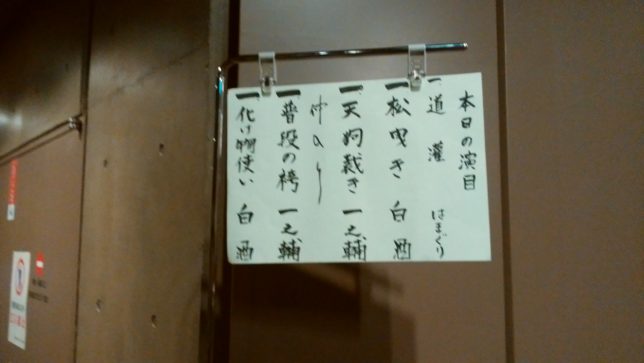 本日の演目
一 道灌 はまぐり
一 松曳き 白酒
一 天狗裁き 一之輔
仲入り
一 普段の袴 一之輔
一 化け物使い 白酒